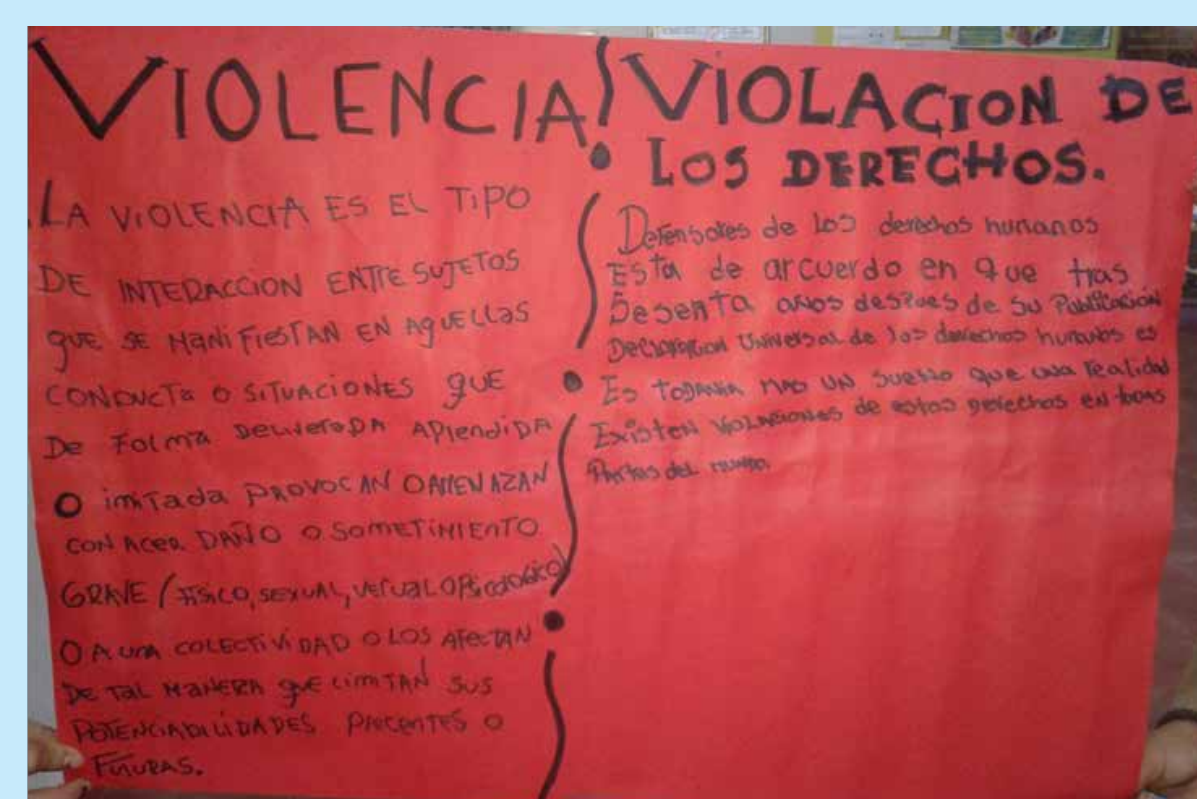 VIOLENCIA
LA VIOLENCIA ES EL TIPO
DE INTERACCION ENTRE SUJETOS
QUE SE MANIFIESTAN EN AQUELLAS
CONDUCTA O SITUACIONES QUE
DE FOLMA DELIVERADA APLENDIDA
O imitada PROVOCAN O AMENAZAN
CON ACER DAÑO O SOMETIMIENTO
GRAVE (FISICO, SEXUAL, VERUAL O PSICOLOGICO)
O A UNA COLECTIVIDAD O LOS AFECTAN
DE TAL MANERA QUE LIMITAN SUS
POTENCIABILIDADES PRECENTES O
FUTURAS.
VIOLACION DE
LOS DERECHOS.
Defensores de LOS derechos humanos
ESTA de arcuerdo en que tras
Sesenta años despues de su Publicación
Declaracion Universal de los derechos humanos es
Es TODAVIA MAS UN SUEÑO que una realidad
EXISTEN VIOLACIONES de estos derechos en todas
Partes del mundo.